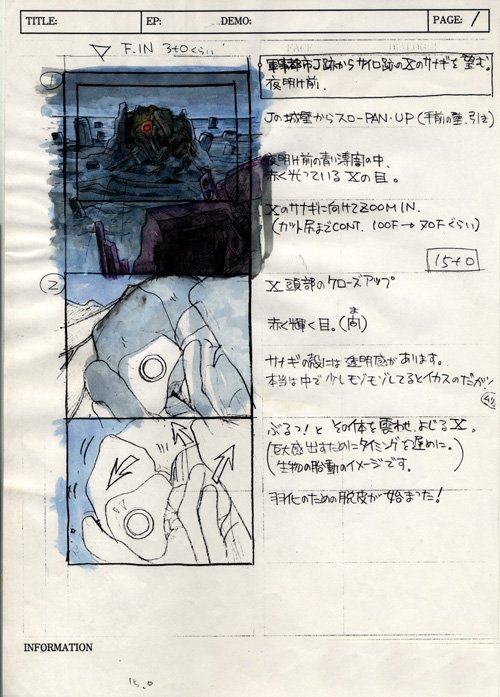 TITLE: EP: DEMO: PAGE: 1
F.IN 3+0くらい
FACE DIALOGUE
①
軍事都市J跡からサイロ跡のXのサナギを望む。
夜明け前.
Jの城壁からスローPAN・UP (手前の壁、引き)
夜明け前の青い薄闇の中、
赤く光っているXの目。
Xのサナギに向けてZOOM IN.
(カット尻までCONT. 100F→70Fぐらい)
15+0
②
X頭部のクローズアップ
赤く輝く目。(ま)
サナギの殻には透明感があります。
本当は中で少しモゾモゾしてるとイカスのだが
ぶるっ!と その体を震わせ、よじるX.
(巨大感出すためにタイミングを遅めに。)
(生物の胎動のイメージです。)
羽化のための脱皮が始まった!
INFORMATION
15.0